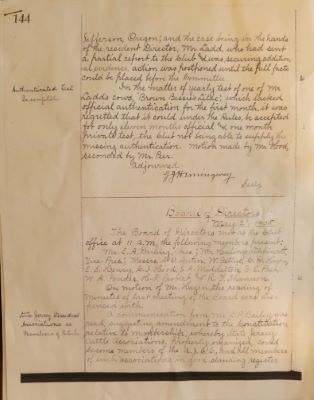 144
Jefferson, Oregon; and the case being in the hands
of the resident Director, Mr. Ladd, who had sent
a partial report to the Club & was securing addition-
al evidence, action was postponed until the full facts
could be placed before the Committee.
Authenticated Test
Incomplete.
In the matter of yearly test of one of Mr.
Ladd's cows, "Brown Bessie's", which lacked
official authentication for the first month, it was
regretted that it could under the Rules, be accepted
for only eleven months official & one month
private test, the Club not being able to supply the
missing authentication. Motion made by Mr. Hood,
seconded by Mr.
Adjourned
J.J. Hemingway
Secty.
Board of Directors
May 2, 1905
The Board of Directors met at the Club
office at 11 A.M., the following members present:
Mr. E. A. Darling, Pres., Mr.
Vice Pres., Messrs.
E. S. Henry, H. J. Hood, J. A. Middleton,
W. R.
On motion of Mr. the reading of
Minutes of first meeting of the Board was dis-
pensed with.
State Jersey Breeders'
Associations as
Members of Club.
A communication from Mr. Bailey was
read, suggesting amendment to the Constitution
relative to membership, whereby State Jersey
Cattle Associations, properly organized could
become members of the A.J.C.C. and all members
of such associations in good standing register